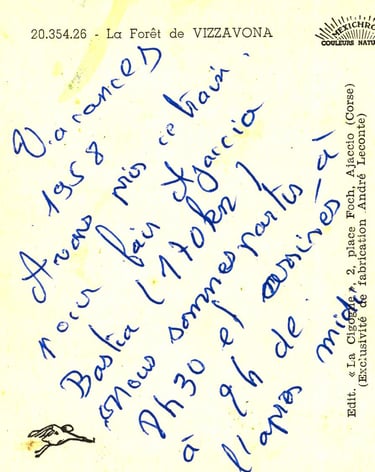 20.354.26 - La Forêt de VIZZAVONA
MEXICHROME
COULEURS NATU
Vacances
1958
Avons pris ce train.
pour fair Ajaccio
Bastia (170km)
Nous sommes partis à
8h30 et arrivés à
à 2h de
l'après midi.
Edit. « La Cigogne », 2, place Foch, Ajaccio (Corse)
(Exclusivité de fabrication André Leconte)